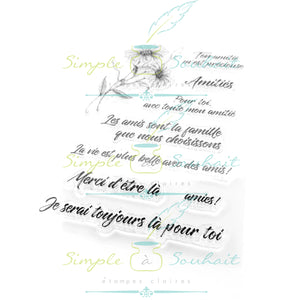 Simple à Souhait
Ton amitié
m'est précieuse
Amitiés
Pour toi,
avec toute mon amitié
étampes claires
Les amis sont la famille
que nous choisissons
La vie est plus belle avec des amis!
Simple à Souhait
Merci d'être là amies!
Je serai toujours là pour toi
Simple à Souhait
étampes claires